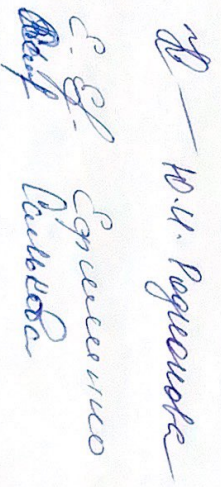 Ю.И. Родионова
Е. Еф. Ефименко
Салькова